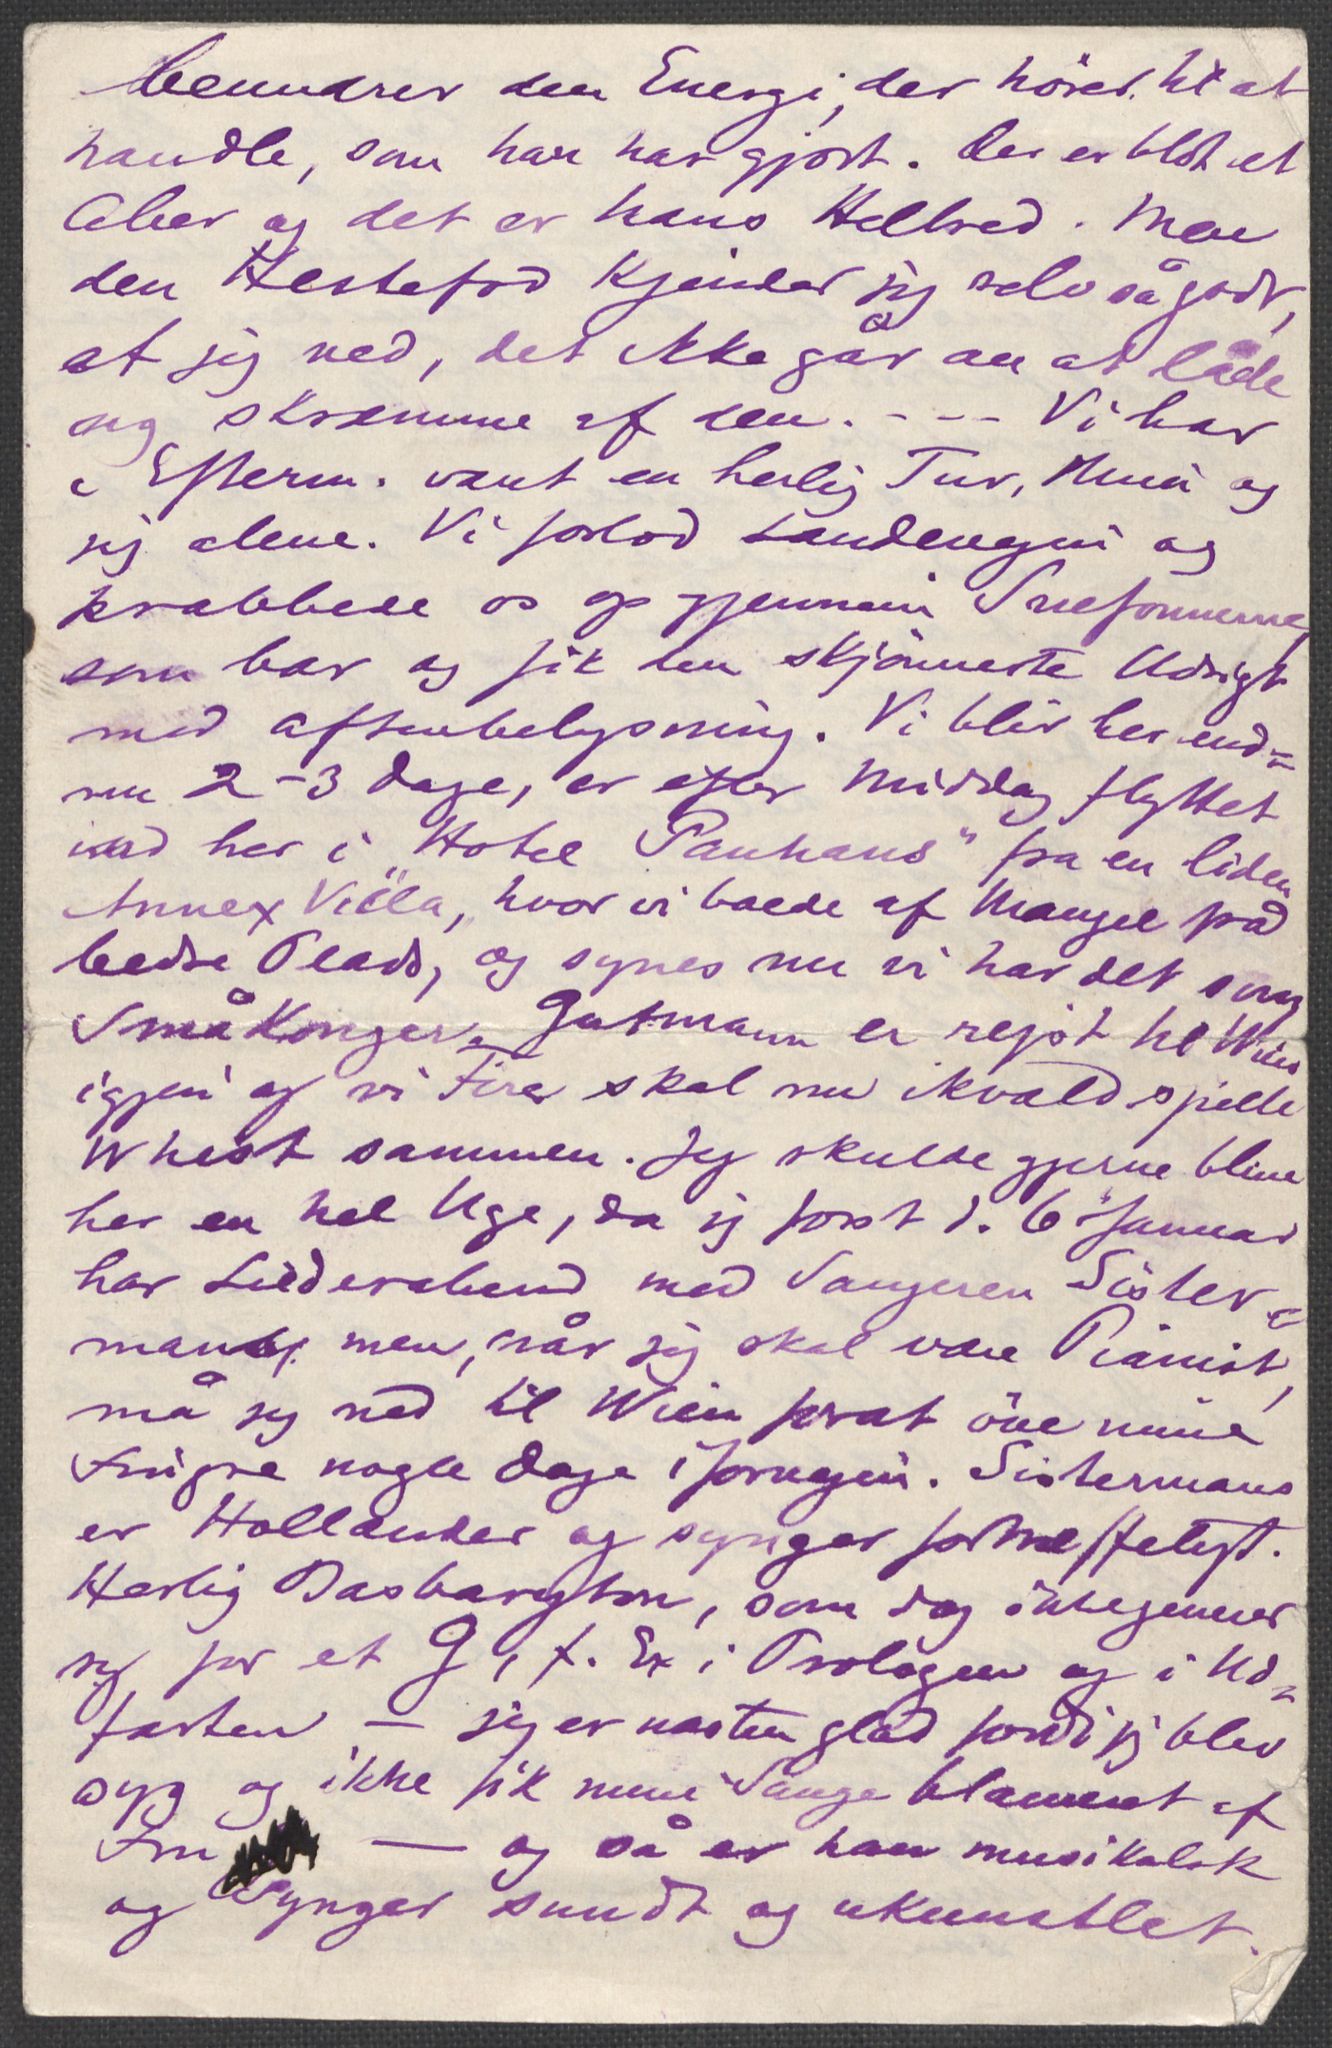 beundrer den Energi, der hører til at
handle, som han har gjort. Der er blot et
Aber og det er hans Helbred. Men
den Hestefod kjender jeg selv så godt,
at jeg ved, det ikke går an at lade
sig skræmme af den. - - - Vi har
i Efterm. vært en herlig Tur, Nina og
jeg alene. Vi forlod Landevejen og
krabbede os op gjennem Snefonnerne,
som bar og fik den skjønneste Udsigt
med aftenbelysning. Vi blir her end=
nu 2-3 Dage, er efter Middag flyttet
ind her i "Hotel Panhans" fra en liden
Annex Villa, hvor vi boede af Mangel på
bedre Plads, og synes nu vi har det som
Småkonger. Gutmann er rejst til Wien
igjen og vi Fire skal nu ikvæld spille
Whist sammen. Jeg skulde gjerne blive
her en hel Uge, da jeg først d. 6 Januar
har Liederabend med Sangeren Sister=
mans, men, når jeg skal være Pianist,
må jeg ned til Wien for at öve mine
Fingre nogle Dage iforvejen. Sistermans
er Hollænder og synger fortræffeligt.
Herlig Basbaryton, som dog ikke generer
sig for et G, f. Ex i Prologen og i Ud=
farten — jeg er næsten glad fordi jeg blev
syg og ikke fik mine Sange blameret af
Fru — og så er han musikalsk
og synger sundt og ukunstlet.